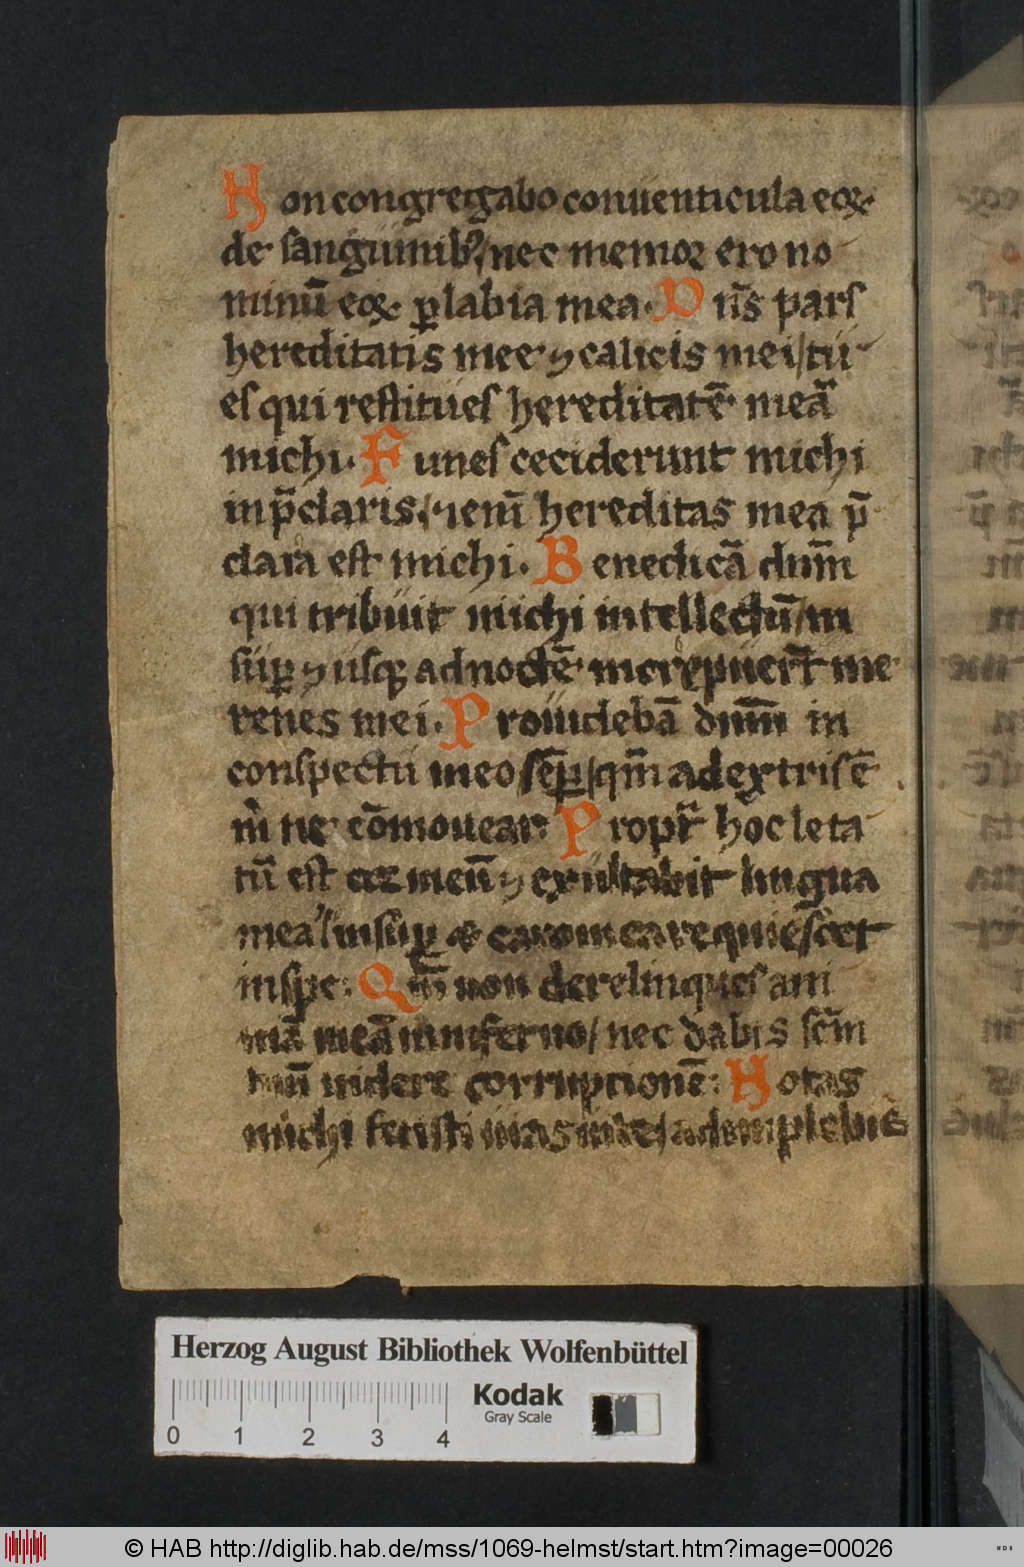 Non congregabo conuenticula eoꝝ·
de sanguinibꝰ/ nec memoꝛ ero no
minū eoꝝ ꝑ labia mea· Dn̄s pars
hereditatis mee ⁊ calicis mei/ tu
es qui restitues hereditatē meā
michi· Funes ceciderunt michi
in p̄claris/ ⁊ enī hereditas mea p̄
clara est michi· Benedicā dnm̄
qui tribuit michi intellectū/ in
suꝑ ⁊ usqꝫ ad noctē increpuerūt me
renes mei· Prouidebā dnm̄ in
conspectu meo sēꝑ/ qm̄ a dextris ē
m̍ ne cōmouear· Propt̄ hoc leta
tū est coꝛ meū ⁊ exultabit lingua
mea/ insuꝑ et caro mea requiescet
in spe· Qm̄ non derelinques ani
mā meā in inferno/ nec dabis scm̄
tuū uidere corruptionē: Notas
michi fecisti uias uite/ adimplebis
Herzog August Bibliothek Wolfenbüttel
Kodak
Gray Scale
0 1 2 3 4
© HAB http://diglib.hab.de/mss/1069-helmst/start.htm?image=00026